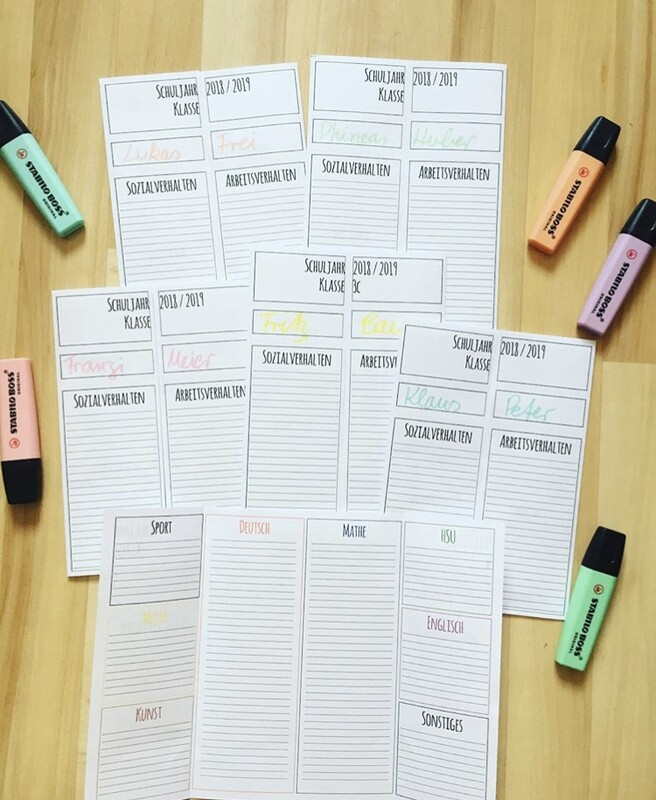 SCHULJAHR 2018 / 2019
KLASSE
Lukas Frei
SOZIALVERHALTEN ARBEITSVERHALTEN
SCHULJAHR 2018 / 2019
KLASSE
Phineas Huber
SOZIALVERHALTEN ARBEITSVERHALTEN
SCHULJAHR 2018 / 2019
KLASSE
Franzi Meier
SOZIALVERHALTEN ARBEITSVERHALTEN
SCHULJAHR 2018 / 2019
KLASSE 3c
Fritz
SOZIALVERHALTEN ARBEITSV
SCHULJAHR 2018 / 2019
KLASSE
Klaus Peter
SOZIALVERHALTEN ARBEITSVERHALTEN
SPORT DEUTSCH MATHE HSU
ENGLISCH
KUNST SONSTIGES
STABILO BOSS
ORIGINAL
STABILO BOSS
ORIGINAL
STABILO BOSS
ORIGINAL
STABILO BOSS
ORIGINAL
STABILO BOSS
ORIGINAL